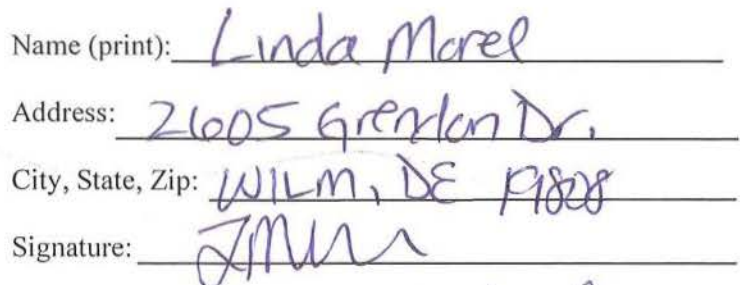 Name (print): Linda Morel
Address: 2605 Grendon Dr.
City, State, Zip: WILM, DE 19808
Signature: